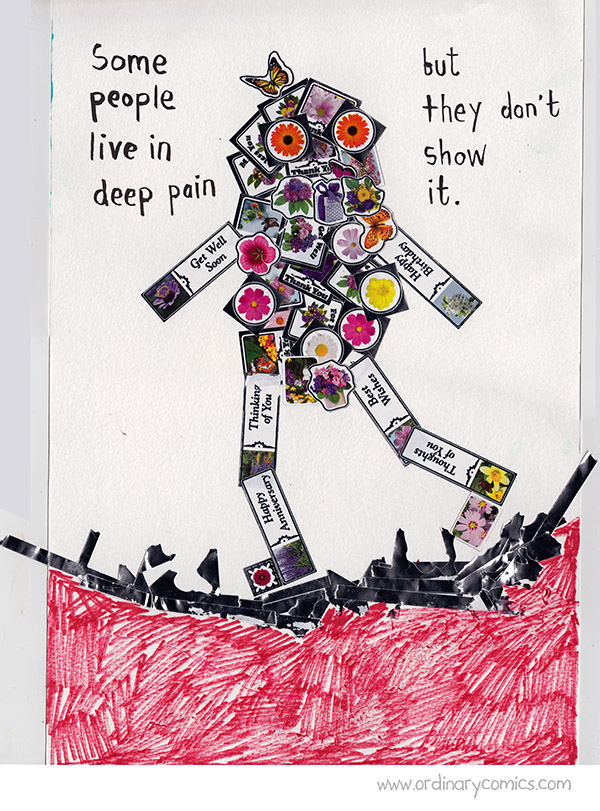 Some
people
live in
deep pain
but
they don't
show
it.
Thank You
Get Well
Soon
Happy
Birthday
Thank You!
Best
Wishes
Thinking
of You
Thoughts
of You
Happy
Anniversary
www.ordinarycomics.com